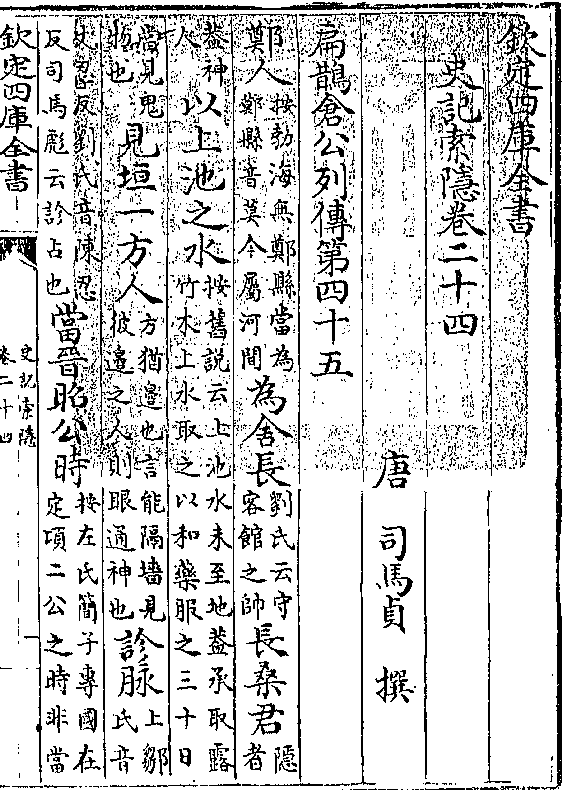 欽定四庫全書
史記索隱卷二十四
唐 司馬貞 撰
扁鵲倉公列傳第四十五
鄭人按勃海無鄭縣當為鄭縣音莫今屬河間為舍長劉氏云守客館之帥長桑君隱者
蓋神人以上池之水按舊說云上池水未至地蓋承取露竹木上水取之以和藥服之三十日
當見鬼物也見垣一方人方猶邊也言能隔墻見彼邊之人則眼通神也診脉上鄒氏音
丈忍反劉氏音陳忍反司馬彪云診占也當晉昭公時按左氏簡子專國在定項二公之時非當
欽定四庫全書
史記索隱
卷二十四